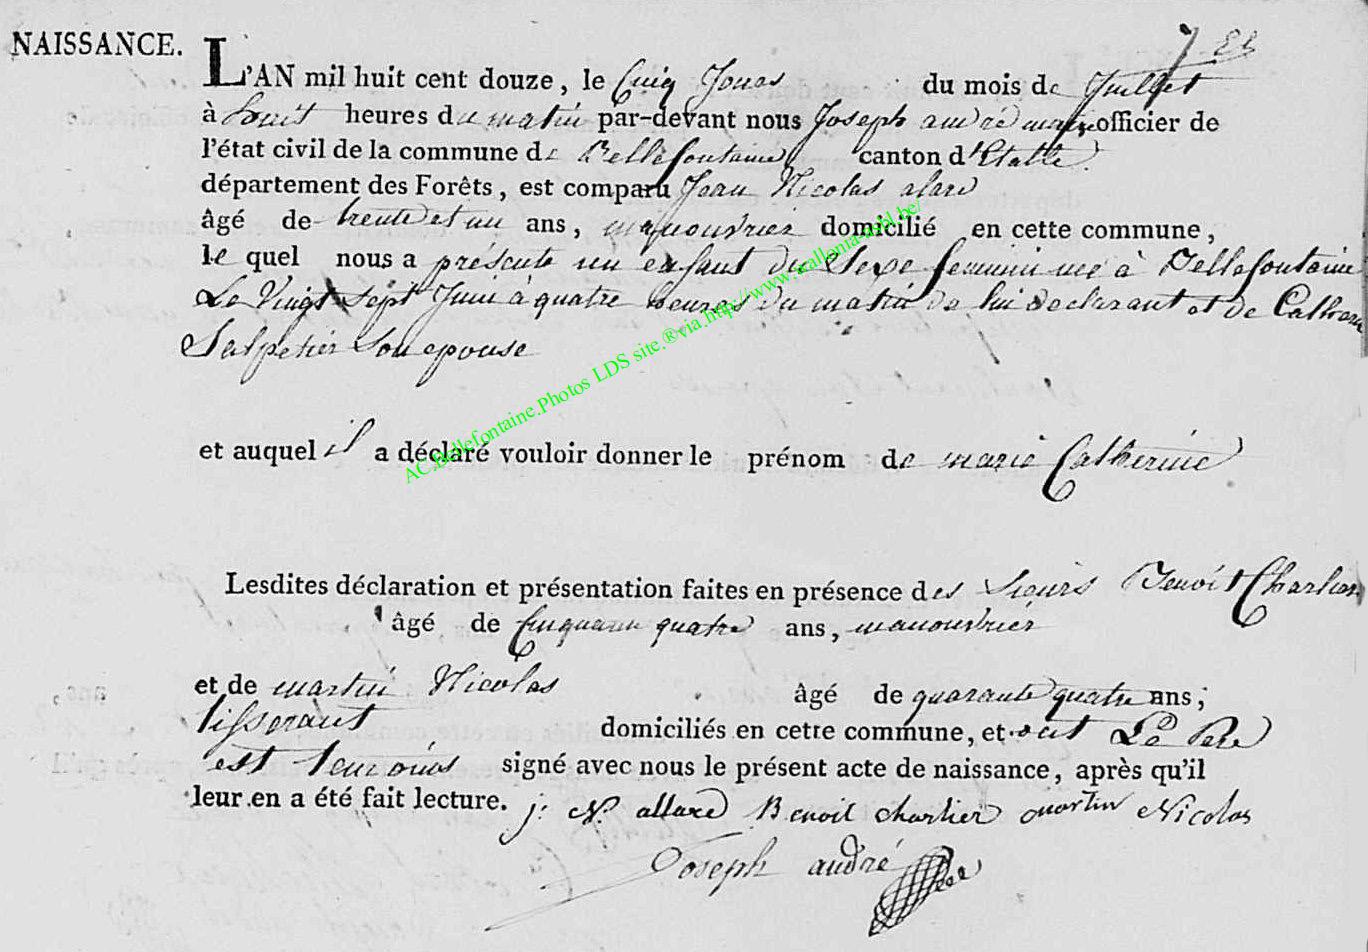 NAISSANCE.
L'AN mil huit cent douze, le Cinq Jours du mois de Juillet
à huit heures du matin par-devant nous Joseph andré maire officier de
l'état civil de la commune de Bellefontaine canton d'Etalle
département des Forêts, est comparu Jean Nicolas alard
âgé de trente et un ans, manouvrier domicilié en cette commune,
le quel nous a présenté un enfant du Sexe feminin né à Bellefontaine
Le Vingt Sept Juin à quatre heures du matin de lui declarant et de Catherine
Salpetier Son epouse
et auquel il a déclaré vouloir donner le prénom de marie Catherine
Lesdites déclaration et présentation faites en présence des Sieurs Benoit Charlier
âgé de Cinquante quatre ans, manouvrier
et de martin Nicolas âgé de quarante quatre ans;
tisserant domiciliés en cette commune, et ont Le Pere
est temoins signé avec nous le présent acte de naissance, après qu'il
leur en a été fait lecture. j. N. allard Benoit charlier martin Nicolas
Joseph andré
AC.Bellefontaine.Photos LDS site.®via.http://www.wallonia-asbl.be/